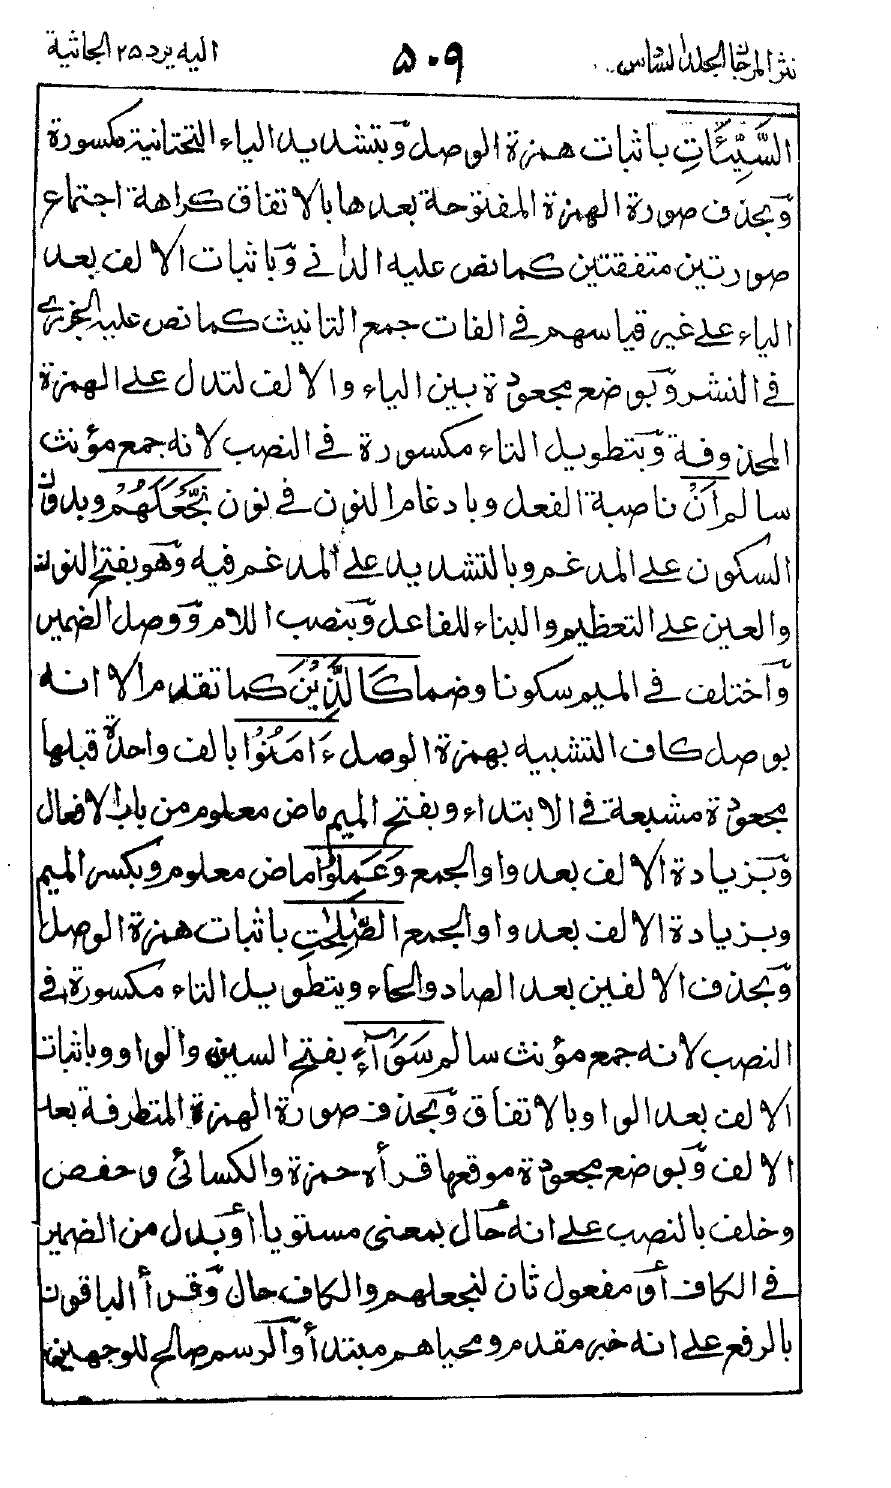 نثر المرجان المجلد السادس
۵۰۹
الیه یرد ۲۵ الجاثیة
السَّيِّئَاتِ باثبات همزة الوصل وَبتشدید الیاء التحتانیة مکسورة
وَبحذف صورة الهمزة المفتوحة بعدها بالاتفاق کراهة اجتماع
صورتین متفقتین کما نص علیه الدانی وَباثبات الالف بعد
الیاء علی غیر قیاسهم فی الفات جمع التانیث کما نص علیه الجزری
فی النشر وَبوضع مجعودة بین الیاء والالف لتدل علی الهمزة
المحذوفة وَبتطویل التاء مکسورة فی النصب لانه جمع مؤنث
سالم أَنْ ناصبة الفعل وبادغام النون فی نون نَّجْعَلَهُمْ وبدون
السکون علی المدغم وبالتشدید علی المدغم فیه وَهو بفتح النون
والعین علی التعظیم والبناء للفاعل وَبنصب اللام وَوصل الضمیر
وَاختلف فی المیم سکونا وضما كَالَّذِيْنَ کما تقدم الا انه
بوصل کاف التشبیه بهمزة الوصل ءَامَنُوْا بالف واحدة قبلها
مجعودة مشبعة فی الابتداء وبفتح المیم ماض معلوم من باب الافعال
وَبزیادة الالف بعد واو الجمع وَعَمِلُوا ماض معلوم وبکسر المیم
وبزیادة الالف بعد واو الجمع الصّٰلِحٰتِ باثبات همزة الوصل
وَبحذف الالفین بعد الصاد والحاء وبتطویل التاء مکسورة فی
النصب لانه جمع مؤنث سالم سَوَآءً بفتح السین والواو وباثبات
الالف بعد الواو بالاتفاق وَبحذف صورة الهمزة المتطرفة بعد
الالف وَبوضع مجعودة موقعها قرأه حمزة والکسائی وحفص
وخلف بالنصب علی انه حال بمعنی مستویا أو بدل من الضمیر
فی الکاف أو مفعول ثان لنجعلهم والکاف حال وَقرأ الباقون
بالرفع علی انه خبر مقدم ومحیاهم مبتدأ والرسم صالح للوجهین